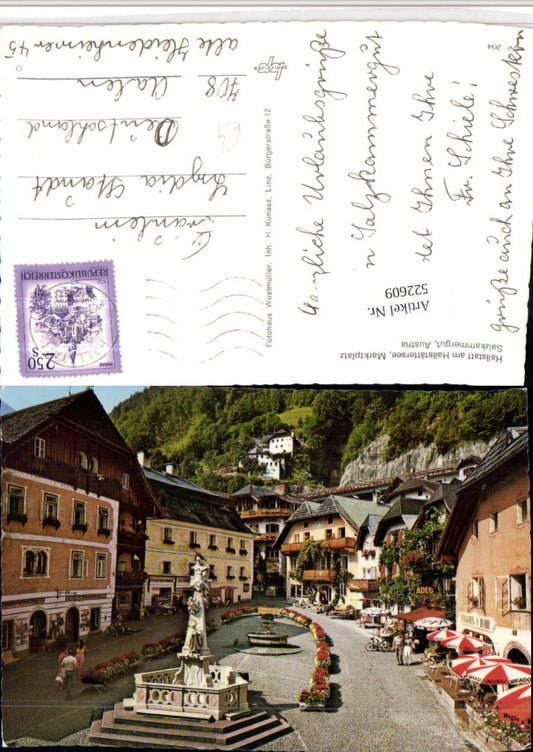 Hallstatt am Hallstättersee, Marktplatz
Salzkammergut, Austria
Nr. 204
Artikel Nr.
522609
Herzliche Urlaubsgrüße
Salzkammergut
det Ihnen Ihre
Fr. Schiele!
Grüße auch an Ihre Schwester
Fotohaus Westmüller, Inh. H. Kunasz, Linz, Bürgerstraße 12
REPUBLIK ÖSTERREICH
2.50
S
MURAU
Fräulein
Lydia Standt
Deutschland
708 Aalen
alte Heidenheimer 45
ADEG
MIKADO